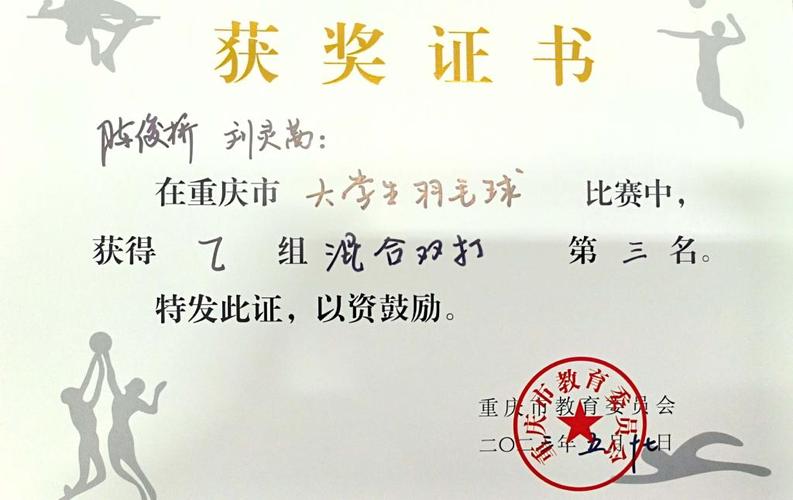 获奖证书
陈俊桥 刘灵茜:
在重庆市 大学生羽毛球 比赛中,
获得 乙 组 混合双打 第 三 名。
特发此证,以资鼓励。
重庆市教育委员会
二〇二三年五月十七日
重庆市教育委员会